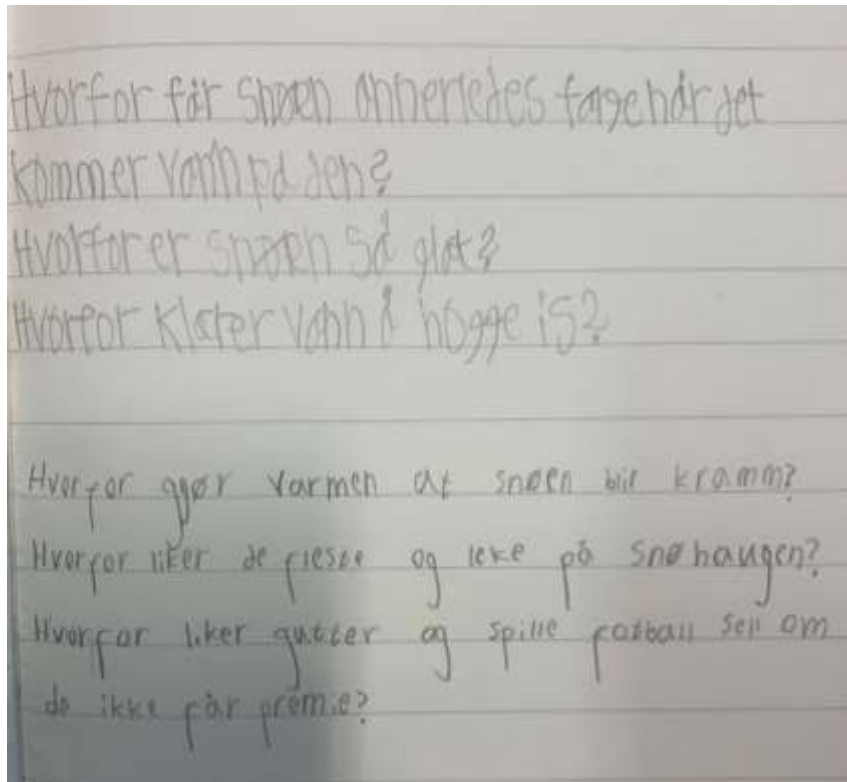 Hvorfor får snøen annerledes fage når det
kommer vann på den?
Hvorfor er snøen så glat?
Hvorfor klater vann å høgge is?
Hvorfor gjør varmen at snøen blir kramm?
Hvorfor liker de fleste og leke på snøhaugen?
Hvorfor liker gutter og spille fotball sell om
de ikke får premie?